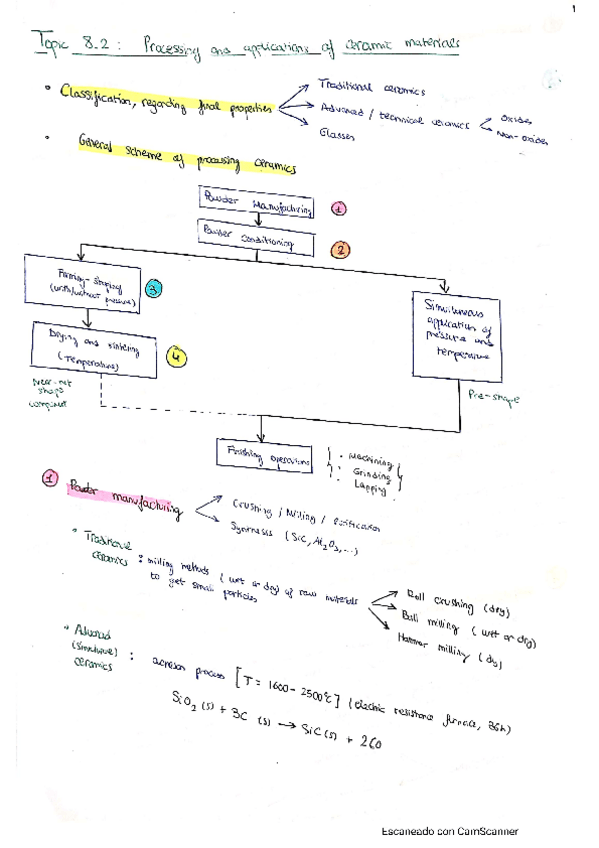 1
Topic 8.2 : Processing and applications of ceramic materials
• Classification, regarding final properties
Traditional ceramics
Advanced / technical ceramics
Oxides
Non-oxides
Glasses
• General scheme of processing ceramics
Powder Manufacturing
1
Powder conditioning
2
Forming-shaping
(with/without pressure)
3
Drying and sintering
(Temperature)
4
Near-net
shape
component
Simultaneous
application of
pressure and
temperature
Pre-shape
Finishing operations
. Machining
. Grinding
. Lapping
1 Powder manufacturing
Crushing / Milling / Purification
Synthesis (SiC, Al2O3,...)
• Traditional
ceramics : milling methods (wet or dry) of raw materials
to get small particles
Roll crushing (dry)
Ball milling (wet or dry)
Hammer milling (dry)
• Advanced
ceramics :
acheson process [T = 1600 - 2500ºC] (Electric resistance furnace, 36h)
SiO2 (s) + 3C (s) → SiC(s) + 2CO
Escaneado con CamScanner